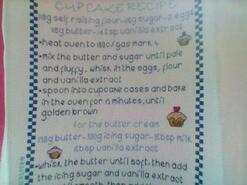 CUPCAKE RECIPE
self raising flour sugar 2 eggs
butter vanilla extract
•heat oven to 180c/gas mark 4
•mix the butter and sugar until pale
and fluffy, whisk in the eggs, flour
and vanilla extract
•spoon into cupcake cases and bake
in the oven for minutes, until
golden brown
for the butter cream
butter icing sugar milk
vanilla extract
•whisk the butter until soft, then add
the icing sugar and vanilla extract